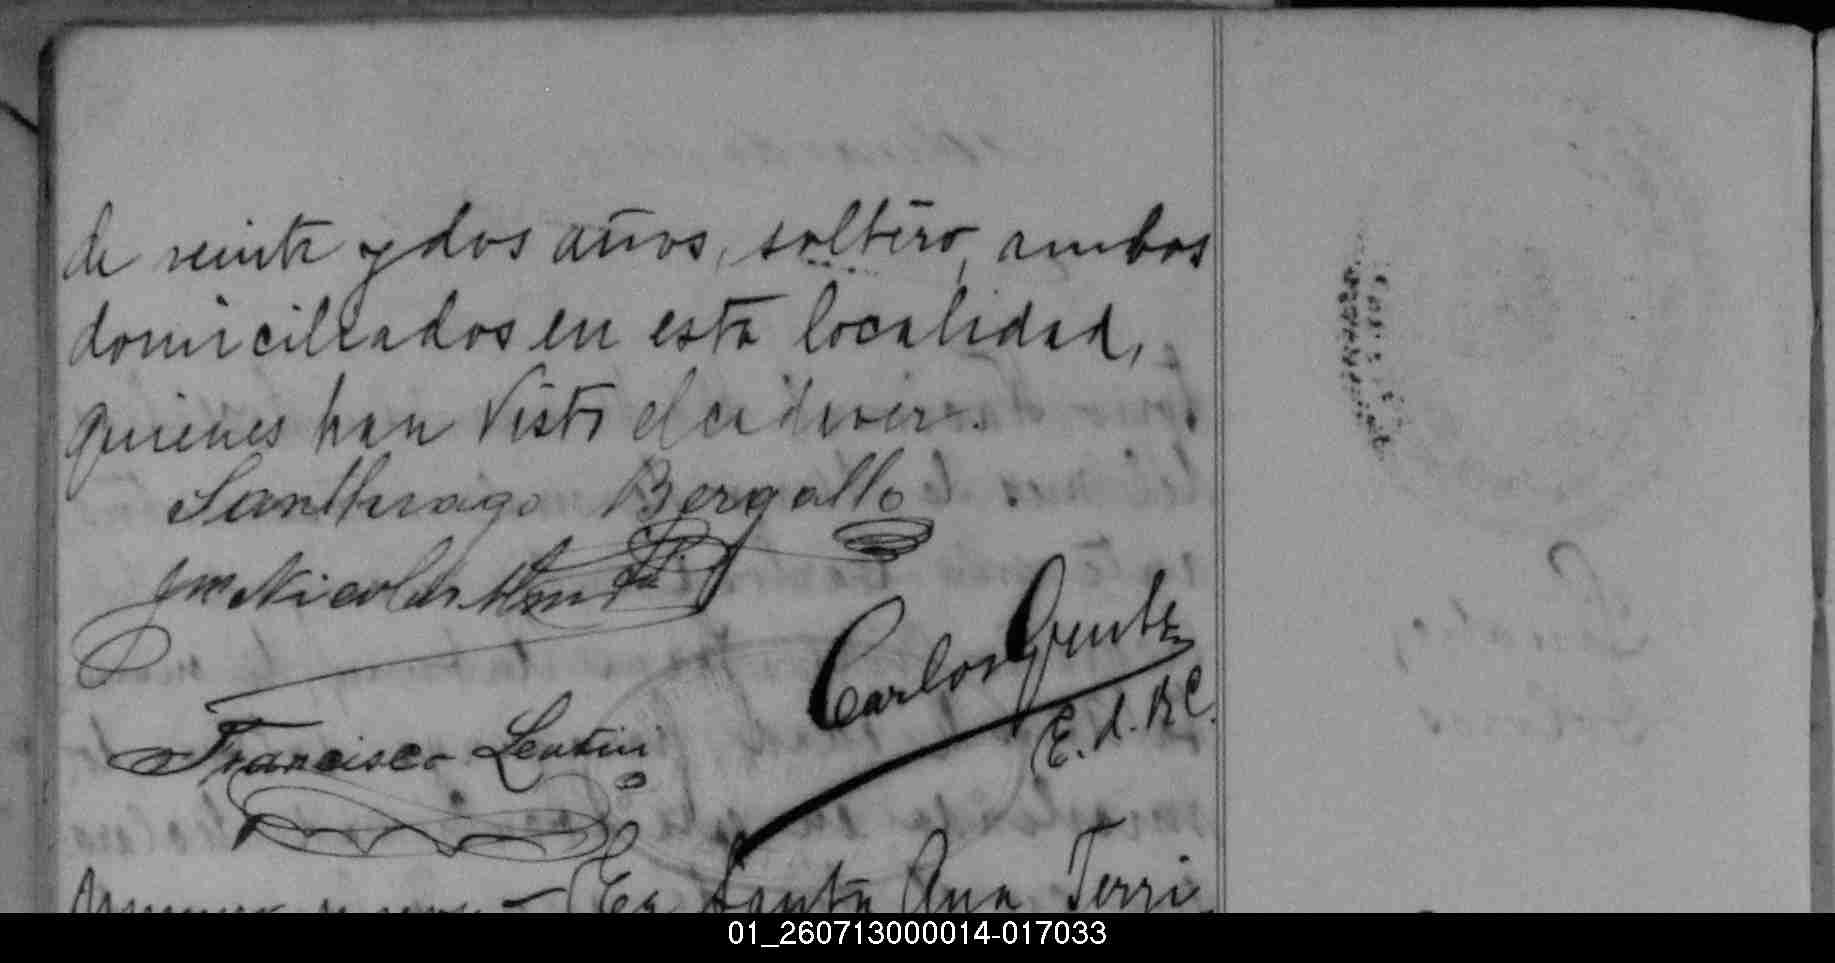 de veinte y dos años, soltero, ambos
domiciliados en esta localidad,
quienes han Visto el cadaver.
Santhiago Bergallo
Jn Nicolas
Carlos Gentz
E. d. R C.
Francisco Lentini
Numero nueve — En Santa Ana Terri
01_260713000014-017033